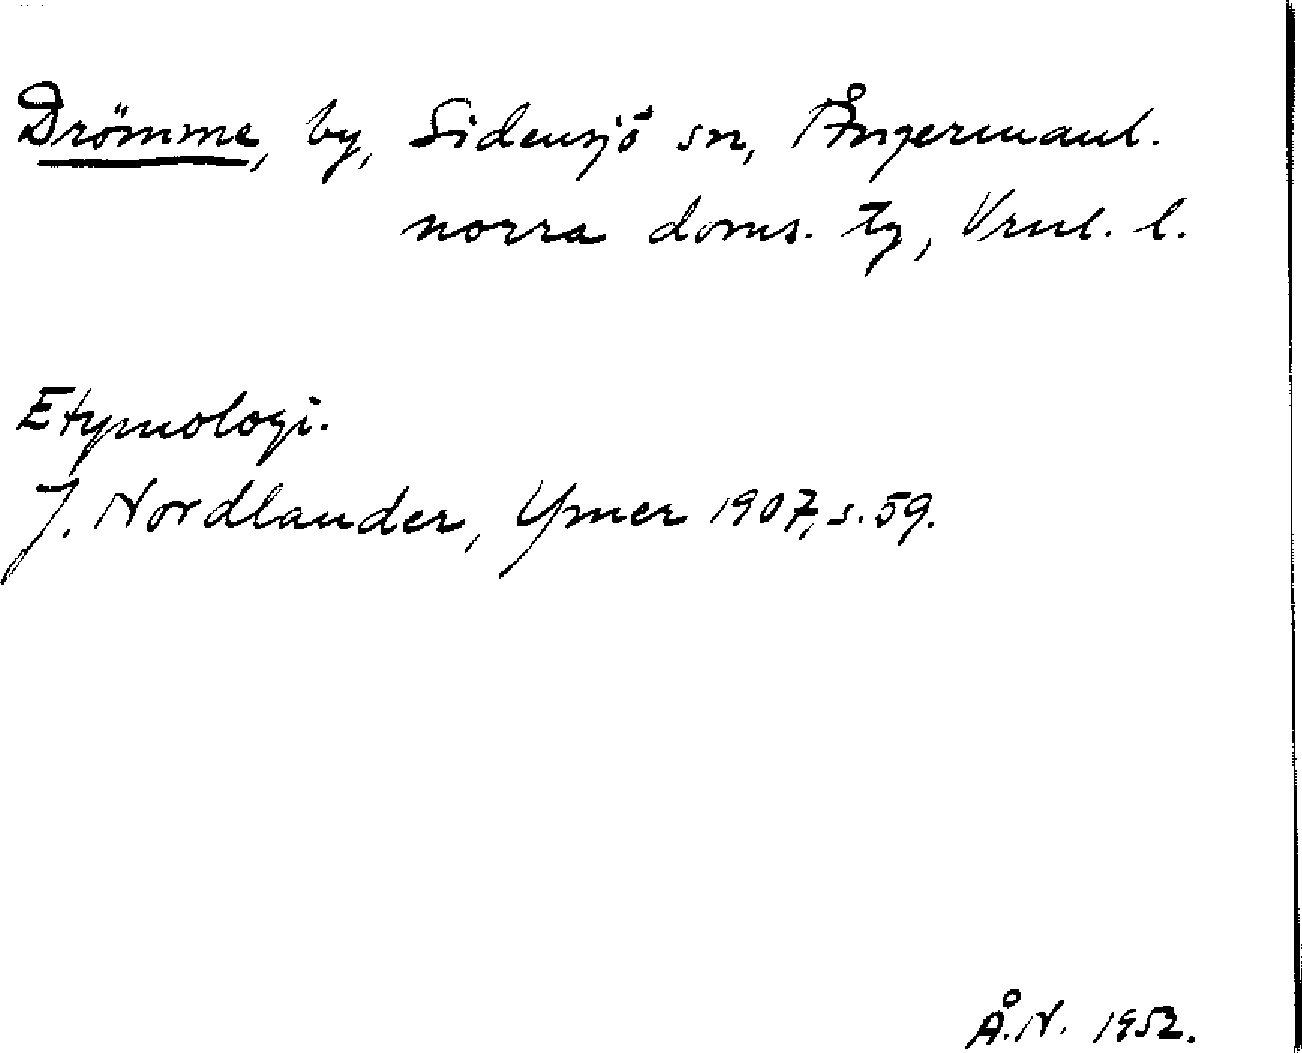 Drömme, by, Sidensjö sn, Ångermanl.
norra doms. tg, Vrnl. l.
Etymologi.
J. Nordlander, Ymer 1907, s. 59.
Å.N. 1952.